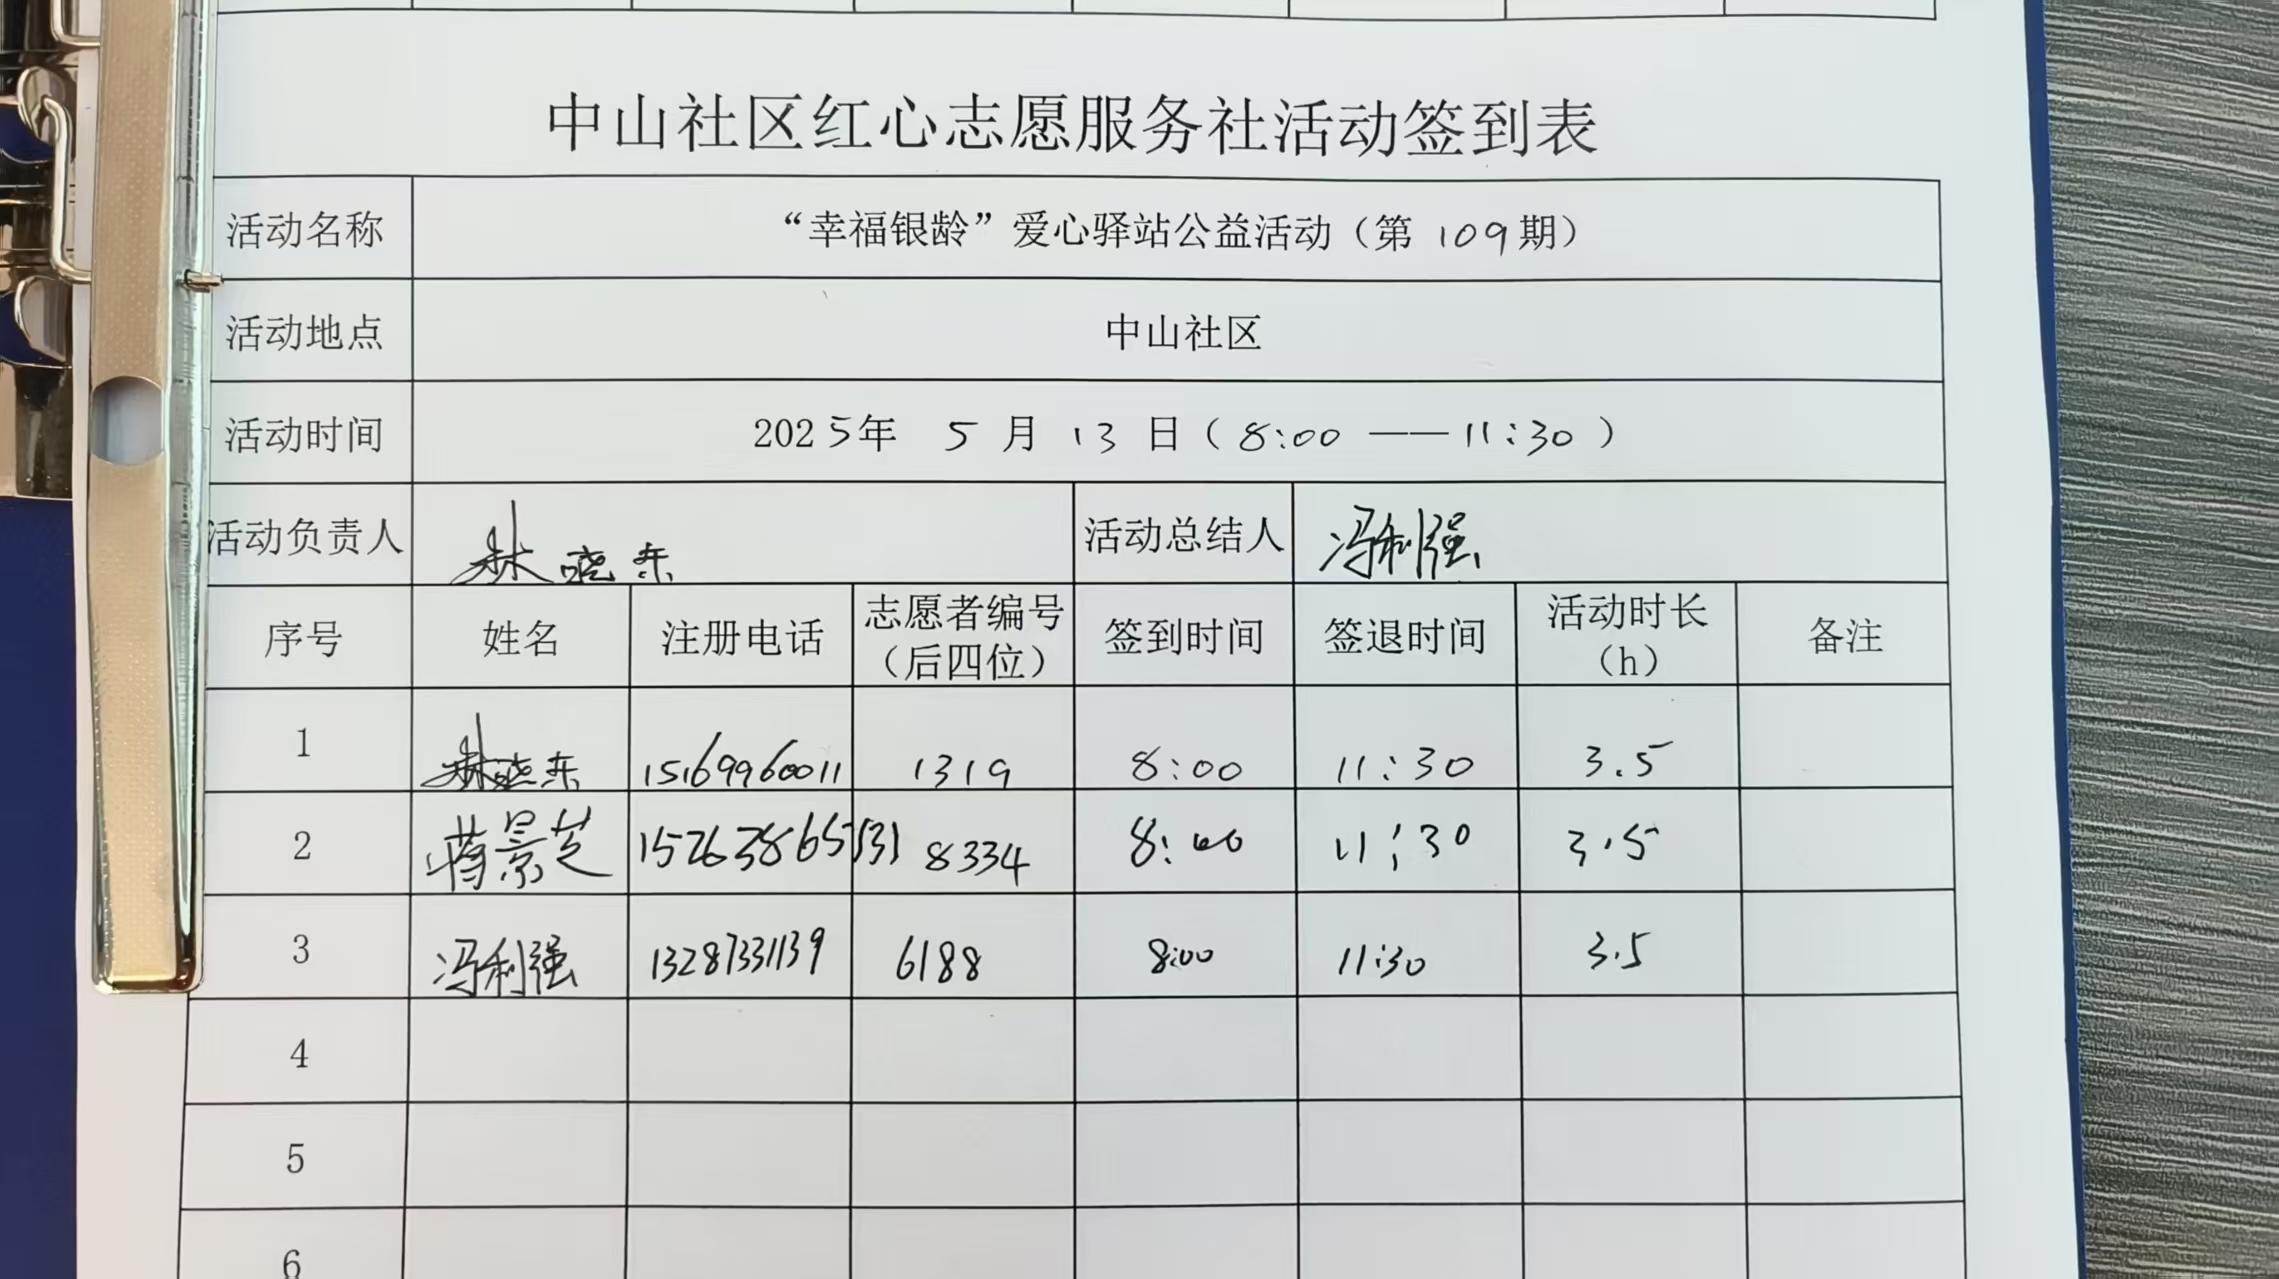 中山社区红心志愿服务社活动签到表
活动名称 “幸福银龄”爱心驿站公益活动（第 109 期）
活动地点 中山社区
活动时间 2025年 5 月 13 日（8:00 ——11:30）
活动负责人 林晓东 活动总结人 冯利强
序号 姓名 注册电话 志愿者编号（后四位） 签到时间 签退时间 活动时长（h） 备注
1 林晓东 15169960011 1319 8:00 11:30 3.5
2 蒋景芝 8334 8:00 11:30 3.5
3 冯利强 13287331139 6188 8:00 11:30 3.5
4
5
6